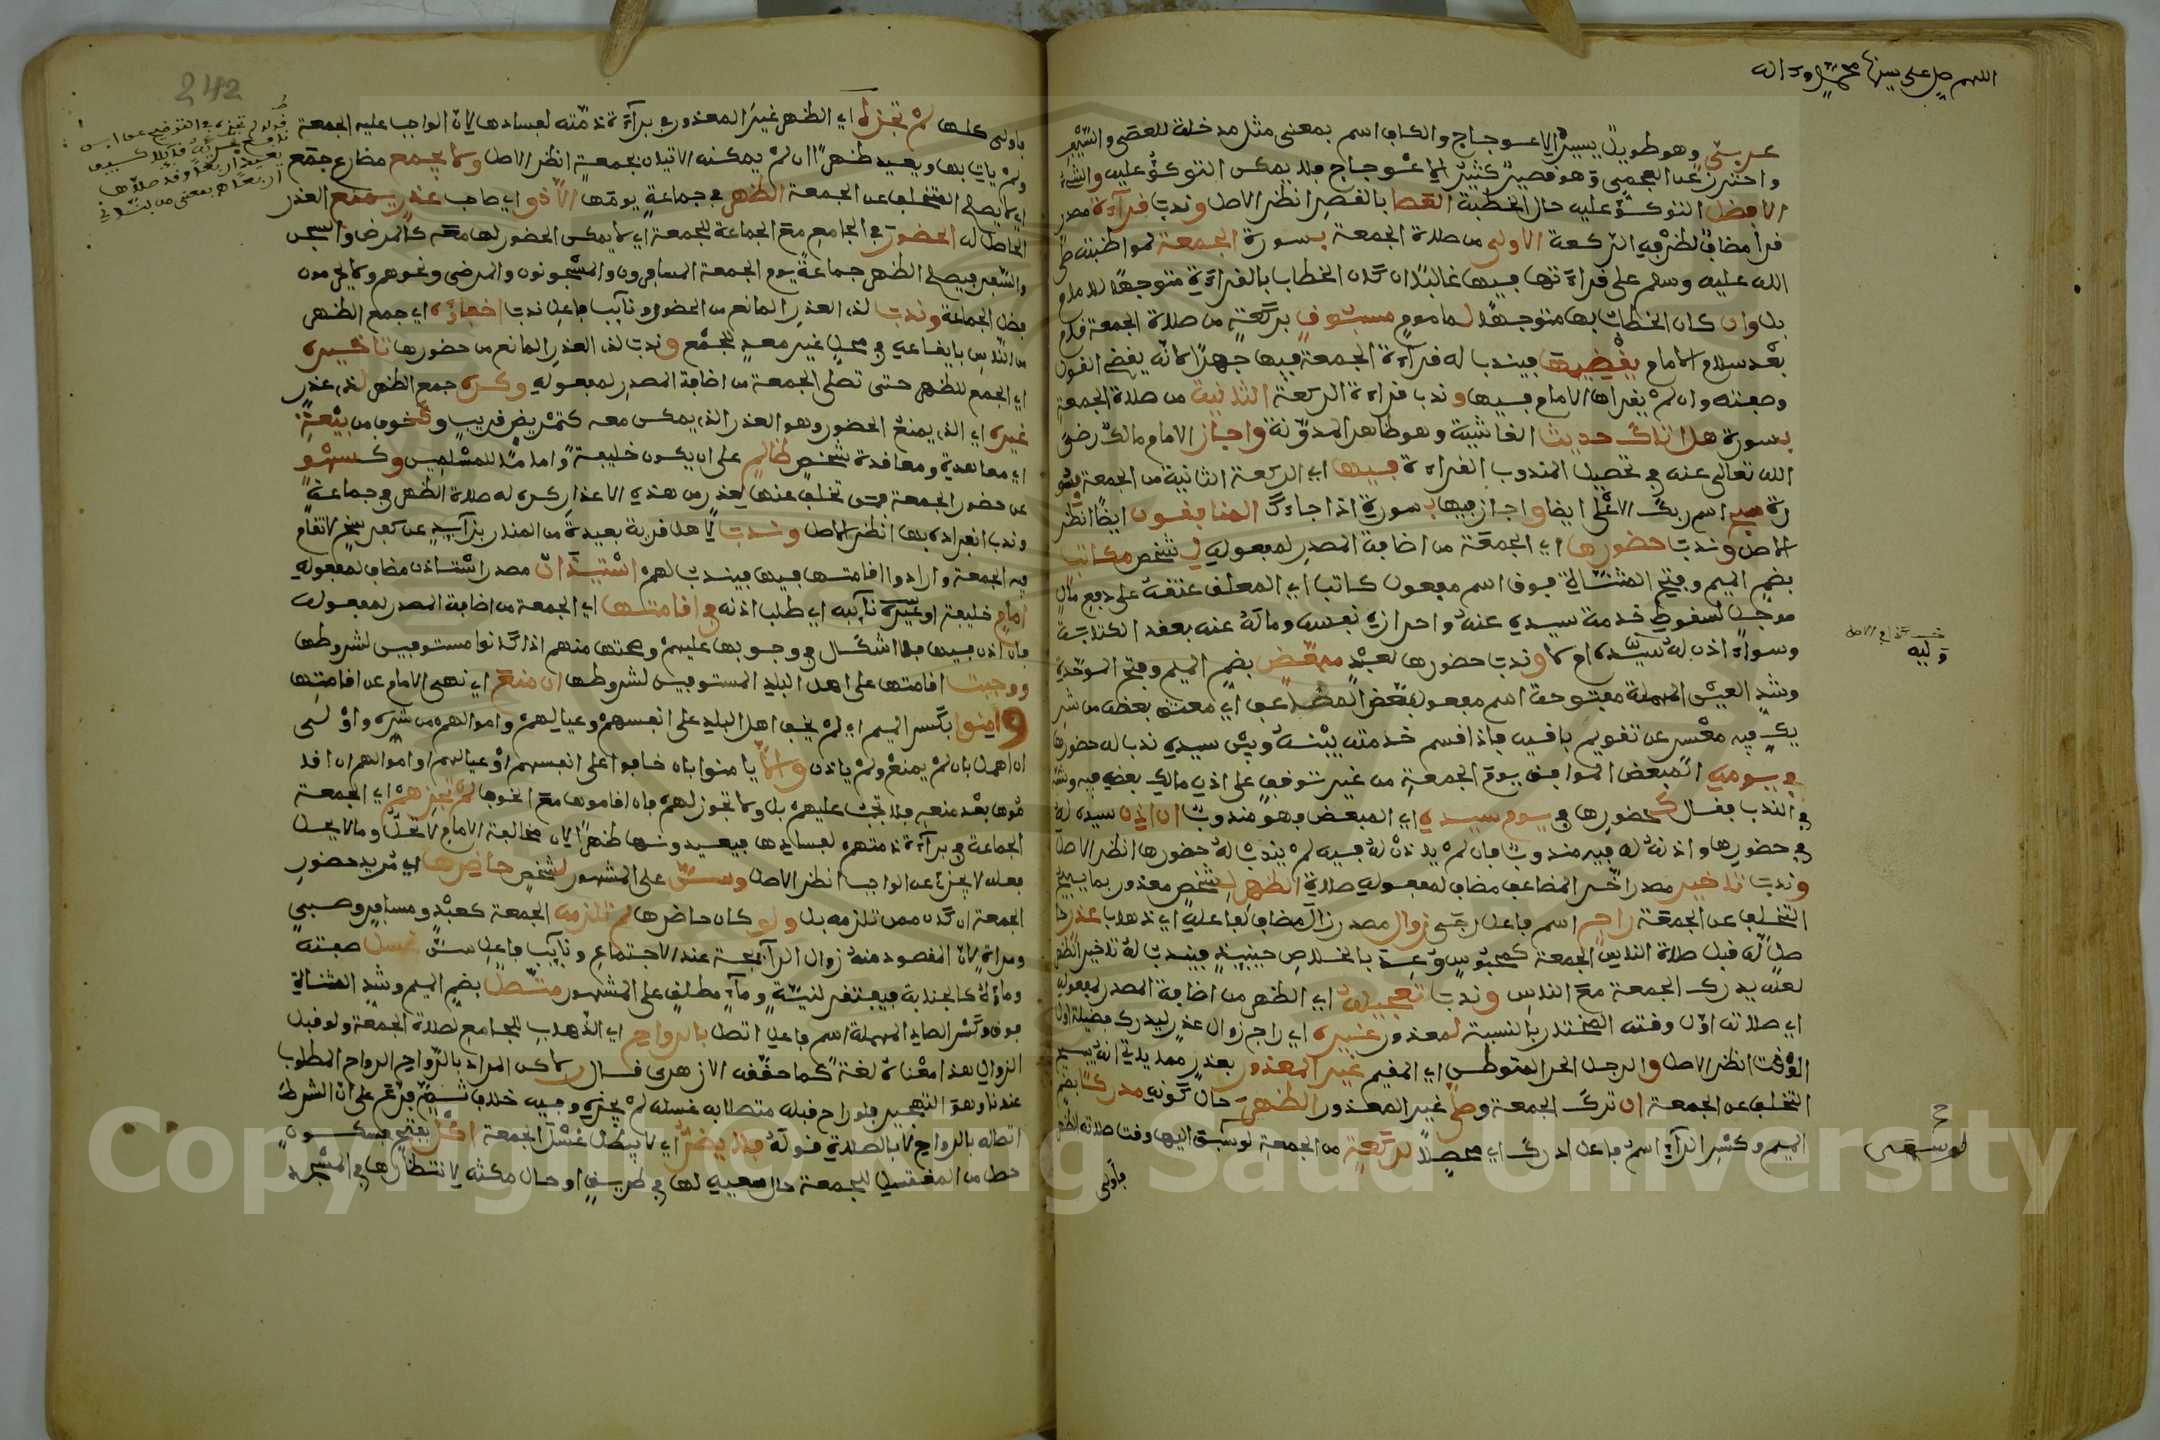 اللهم صل على سيدنا محمد وءاله
عربي وهو طويل يسير الاعوجاج والكاف اسم بمعنى مثل مدخلة للعصى والسيف
واحترز عن العجمي وهو قصير كثير الاعوجاج فلا يمكن التوكؤ عليه
الافضل التوكؤ عليه حال الخطبة القصا بالقصر انظر الاصل وندب قراءة مصدر
قرأ مضاف لظرفه الركعة الاولى من صلاة الجمعة بسورة الجمعة لمواظبته صلى
الله عليه وسلم على قراءتها فيها غالبا ان كان الخطاب بالقراءة متوجها للامام
بل وان كان الخطاب بها متوجها لماموم مسبوق بركعة من صلاة الجمعة قام
بعد سلام الامام يقضيها فيندب له قراءة الجمعة فيها جهرا لانه يقضي القول
وصفته وان لم يقرأها الامام فيها وندب قراءة الركعة الثانية من صلاة الجمعة
بسورة هل اتاك حديث الغاشية وهو ظاهر المدونة واجاز الامام مالك رضي
الله تعالى عنه في تحصيل المندوب القراءة فيها اي الركعة الثانية من الجمعة بسو
رة سبح اسم ربك الاعلى ايضا واجاز فيها بسورة اذا جاءك المنافقون ايضا انظر
الاصل وندب حضورها اي الجمعة من اضافة المصدر لمفعوله لشخص مكاتب
بضم الميم وفتح المثناة فوق اسم مفعول كاتب اي المعلق عتقه على دفع مال
موجبا لسقوط خدمة سيده عنه واحرازه نفسه وماله عنه بعقد الكتابة
وسواء اذن له سيده ام لا وندب حضورها لعبد مبعض بضم الميم وفتح الموحدة
وشد العين المهملة مفتوحة اسم مفعول بعض المضاعف اي معتق بعضه من شر
يك فيه معسر عن تقويم باقيه فاذا قسم خدمته بينه وبين سيده ندب له حضورها
في يومه المبعض الموافق يوم الجمعة من غير توقف على اذن مالك بعضه
في الندب فقال كحضورها في يوم سيده اي المبعض فهو مندوب ان اذن سيده له
في حضورها واذنه له فيه مندوب فان لم ياذن له فيه لم يندب له حضورها انظر الاصل
وندب تاخير مصدر اخر المضاعف مضاف لمفعوله صلاة الظهر لشخص معذور بما يبيح
التخلف عن الجمعة راج اسم فاعل رجى زوال مصدر زال مضاف لفاعله اي ذهاب عذر حا
صل له قبل صلاة الناس الجمعة كمحبوس وعد بالخلاص حينئذ فيندب له تاخير الظهر
لعله يدرك الجمعة مع الناس وندب تعجيل اي الظهر من اضافة المصدر لمفعوله
اي صلاته اول وقته المختار بالنسبة لمعذور غيره اي راج زوال عذر ليدرك فضيلة اول
الوقت انظر الاصل والرجل الحر المتوطن اي المقيم غير المعذور بعذر مما ياتي انه يبيح
التخلف عن الجمعة ان ترك الجمعة وصلى غير المعذور الظهر حال كونه مدركا بضم
الميم وكسر الراء اسم فاعل ادرك اي محصلا لركعة من الجمعة لو سبق اليها وقت صلاته الظهر
فاولى
وليه
لو سعى
242
باولى كلها لم تجزه اي الظهر غير المعذور في براءة ذمته لفسادها لان الواجب عليه الجمعة
ولم يات بها ويعيد ظهرا ان لم يمكنه الاتيان بجمعة انظر الاصل ولا يجمع مضارع جمع
اي لا يصلي المتخلف عن الجمعة الظهر في جماعة يومها الا ذو اي صاحب عذر يمنع العذر
الحاصل له الحضور في الجامع مع الجماعة للجمعة اي لا يمكن الحضور لها معه كالمرض والسجن
والسفر فيصلي الظهر جماعة يوم الجمعة المسافرون والمسجونون والمرضى ونحوهم ولا يحرمون
فضل الجماعة وندب لذي العذر المانع من الحضور ونايب فاعل ندب اخفاؤه اي جمع الظهر
من الناس بايقاعه في محل غير معد للجمع وندب لذي العذر المانع من حضورها تاخيره
اي الجمع للظهر حتى تصلى الجمعة من اضافة المصدر لمفعوله وكره جمع الظهر لذي عذر
غيره اي الذي يمنع الحضور وهو العذر الذي يمكن معه كتمريض قريب وكخوف من بيعة
اي معاهدة ومعاقدة شخص ظالم على ان يكون خليفة واماما للمسلمين وكسهو
عن حضور الجمعة فمن تخلف عنها لعذر من هذه الاعذار كره له صلاة الظهر في جماعة
وندب انفراده بها انظر الاصل وندب لاهل قرية بعيدة من المنار بزايد عن كفرسخ لاتقام
فيه الجمعة وارادوا اقامتها فيها فيندب لهم استيذان مصدر استاذن مضاف لمفعوله
امام خليفة او غيره نايبه اي طلب اذنه في اقامتها اي الجمعة من اضافة المصدر لمفعوله
فان اذن فيها فلا اشكال في وجوبها عليهم وصحتها منهم اذا كانوا مستوفين لشروطها
ووجبت اقامتها على اهل البلد المستوفين لشروطها ان منع اي نهى الامام عن اقامتها
وامنوا بكسر الميم اي لم يخف اهل البلد على انفسهم وعيالهم واموالهم من شره واولى
ان اهمل بان لم يمنع ولم ياذن والا يامنوا بان خافوا على انفسهم او عيالهم او اموالهم ان اقا
موها بعد منعه فلا تجب عليهم بل ولا تجوز لهم فان اقاموها مع الخوف لم تجزهم اي الجمعة
الجماعة في براءة ذمتهم لفسادها فيعيدونها ظهرا لان مخالفة الامام لا تحل وما لا يحل
فعله لا يجزئ عن الواجب انظر الاصل وسن على المشهور لشخص حاضرها اي مريد حضور
الجمعة ان كان ممن تلزمه بل ولو كان حاضرها لم تلزمه الجمعة كعبد ومسافر وصبي
ومراة لان المقصود منه زوال الرائحة عند الاجتماع ونايب فاعل سن غسل صفته
وماؤه كالجنابة فيفتقر لنية وماء مطلق على المشهور متصل بضم الميم وشد المثناة
فوق وكسر الصاد المهملة اسم فاعل اتصل بالرواح اي الذهاب للجامع لصلاة الجمعة ولو قبل
الزوال هذا معناه لغة كما حققه الازهري قال لاكن المراد بالرواح الرواح المطلوب
عندنا وهو التهجير فلو راح قبله متصلا به غسله لم يجزه وفيه خلاف
اتصاله بالرواح لا بالصلاة قوله فلا يضر اي لا يبطل غسل الجمعة اكل بفتح فسكون
حصل من المغتسل للجمعة حال سعيه لها في طريقه او حال مكثه لانتظارها في المسجد
Copyright © King Saud University